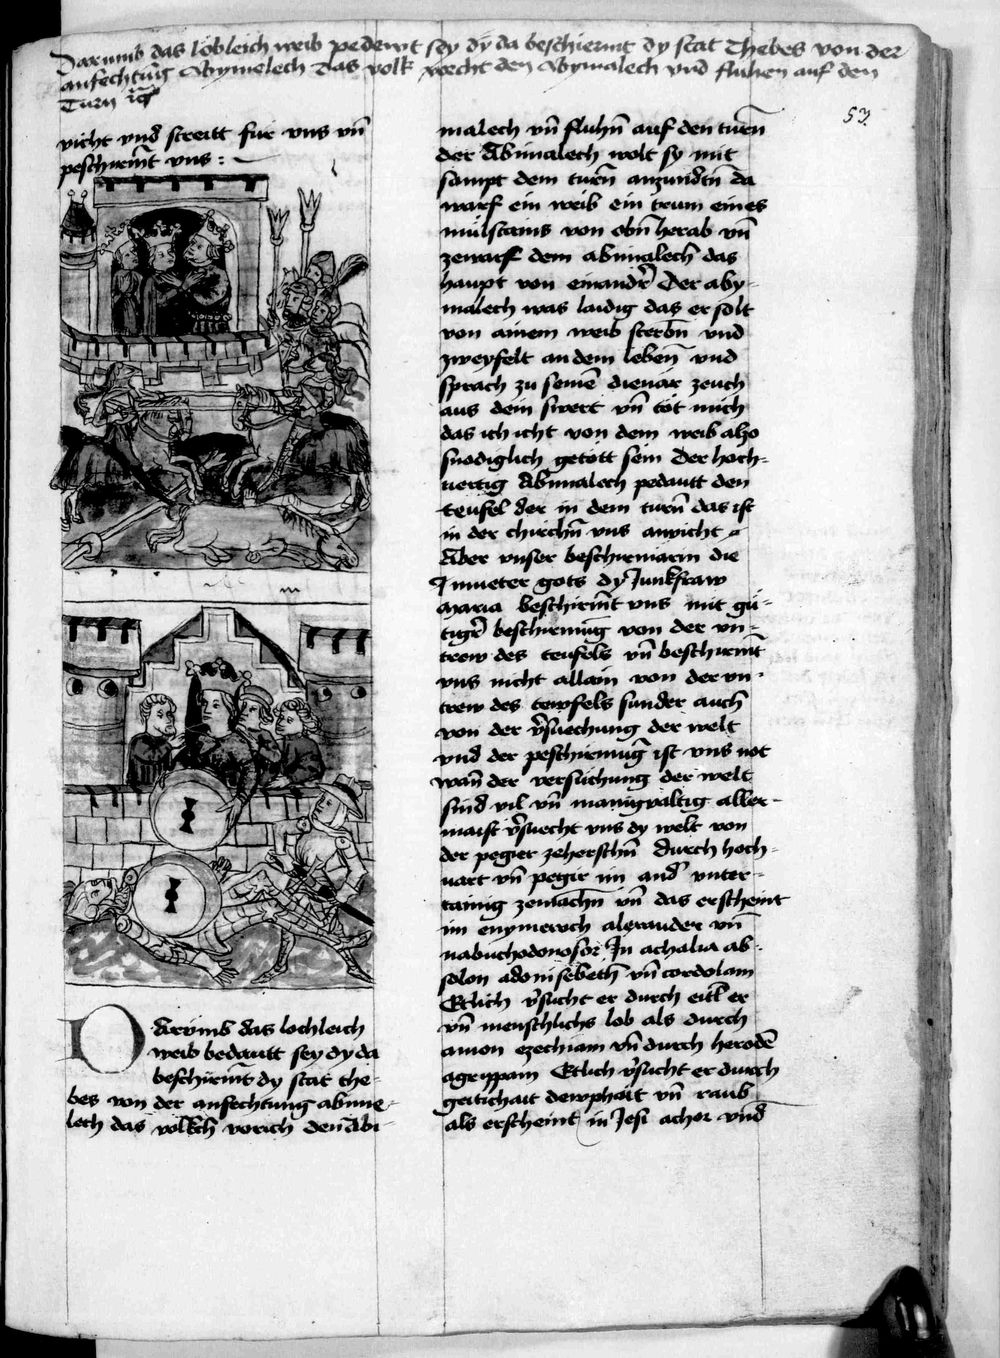 Darumb das lobleich weib pedewt sey dy da beschiermt dy stat Thebes von der
anfechtūg Abymelech Das volk vorcht den Abymalech vnd fluhen auf den
Turn
53
vicht vnd streitt fur vns vn̄
peschirm̄t vns :
Darūmb das lochleich
weib bedautt sey dy da
beschirm̄t dy stat the-
bes von der anfechtung abime-
lech das volkch vorich den Abi-
malech vn̄ fluhn̄ auf den turn̄
der Abimalech wolt sy mit
sampt dem turn̄ anzundtn̄ da
warf ein weib ein trum eines
mulstains von obn̄ herab vn̄
zewarf dem abimalech das
haupt von einandr̄ Der aby-
malech was laidig das er solt
von ainem weib sterbn̄ vnd
zweyfelt an dem leben̄ vnd
sprach zu seinē dienār zeuch
aus dein swert vn̄ töt mich
das ich icht von dem weib also
snodiglich getött sein Der hoch-
uertig Abimalech pedautt den
teufel der in dem turn̄ das ist
in der chirchn̄ vns anuicht
Aber vnser beschirmārin die
mueter gots dy Junkfraw
maria beschirm̄t vns mit gü-
tigr̄ beschirmūg von der vn-
trew des teufels vn̄ beschirm̄t
vns nicht allain von der vn-
trew des tewfels sunder auch
von der v̄suechung der welt
vnd der peschirmūg ist vns not
wan̄ der versuchung der welt
sind vil vn̄ manigvaltig aller-
maist v̄suecht vns dy welt von
der pegier zeherschn̄ durch hoch-
uart vn̄ pegir im and̄ vnter-
tainig zemachn̄ vn̄ das erscheint
im enymeroch alexander vn̄
nabuchodonosor In achalia ab-
solon adonisebeth vn̄ cordolam
Etlich v̄sucht er durch eitl er
vn̄ menschlichs lob als durch
amon ezechiam vn̄ durch herodē
agrippam Etlich v̄sucht er durch
geitichait dewphait vn̄ raub
als erscheint in Jesi achor vnd